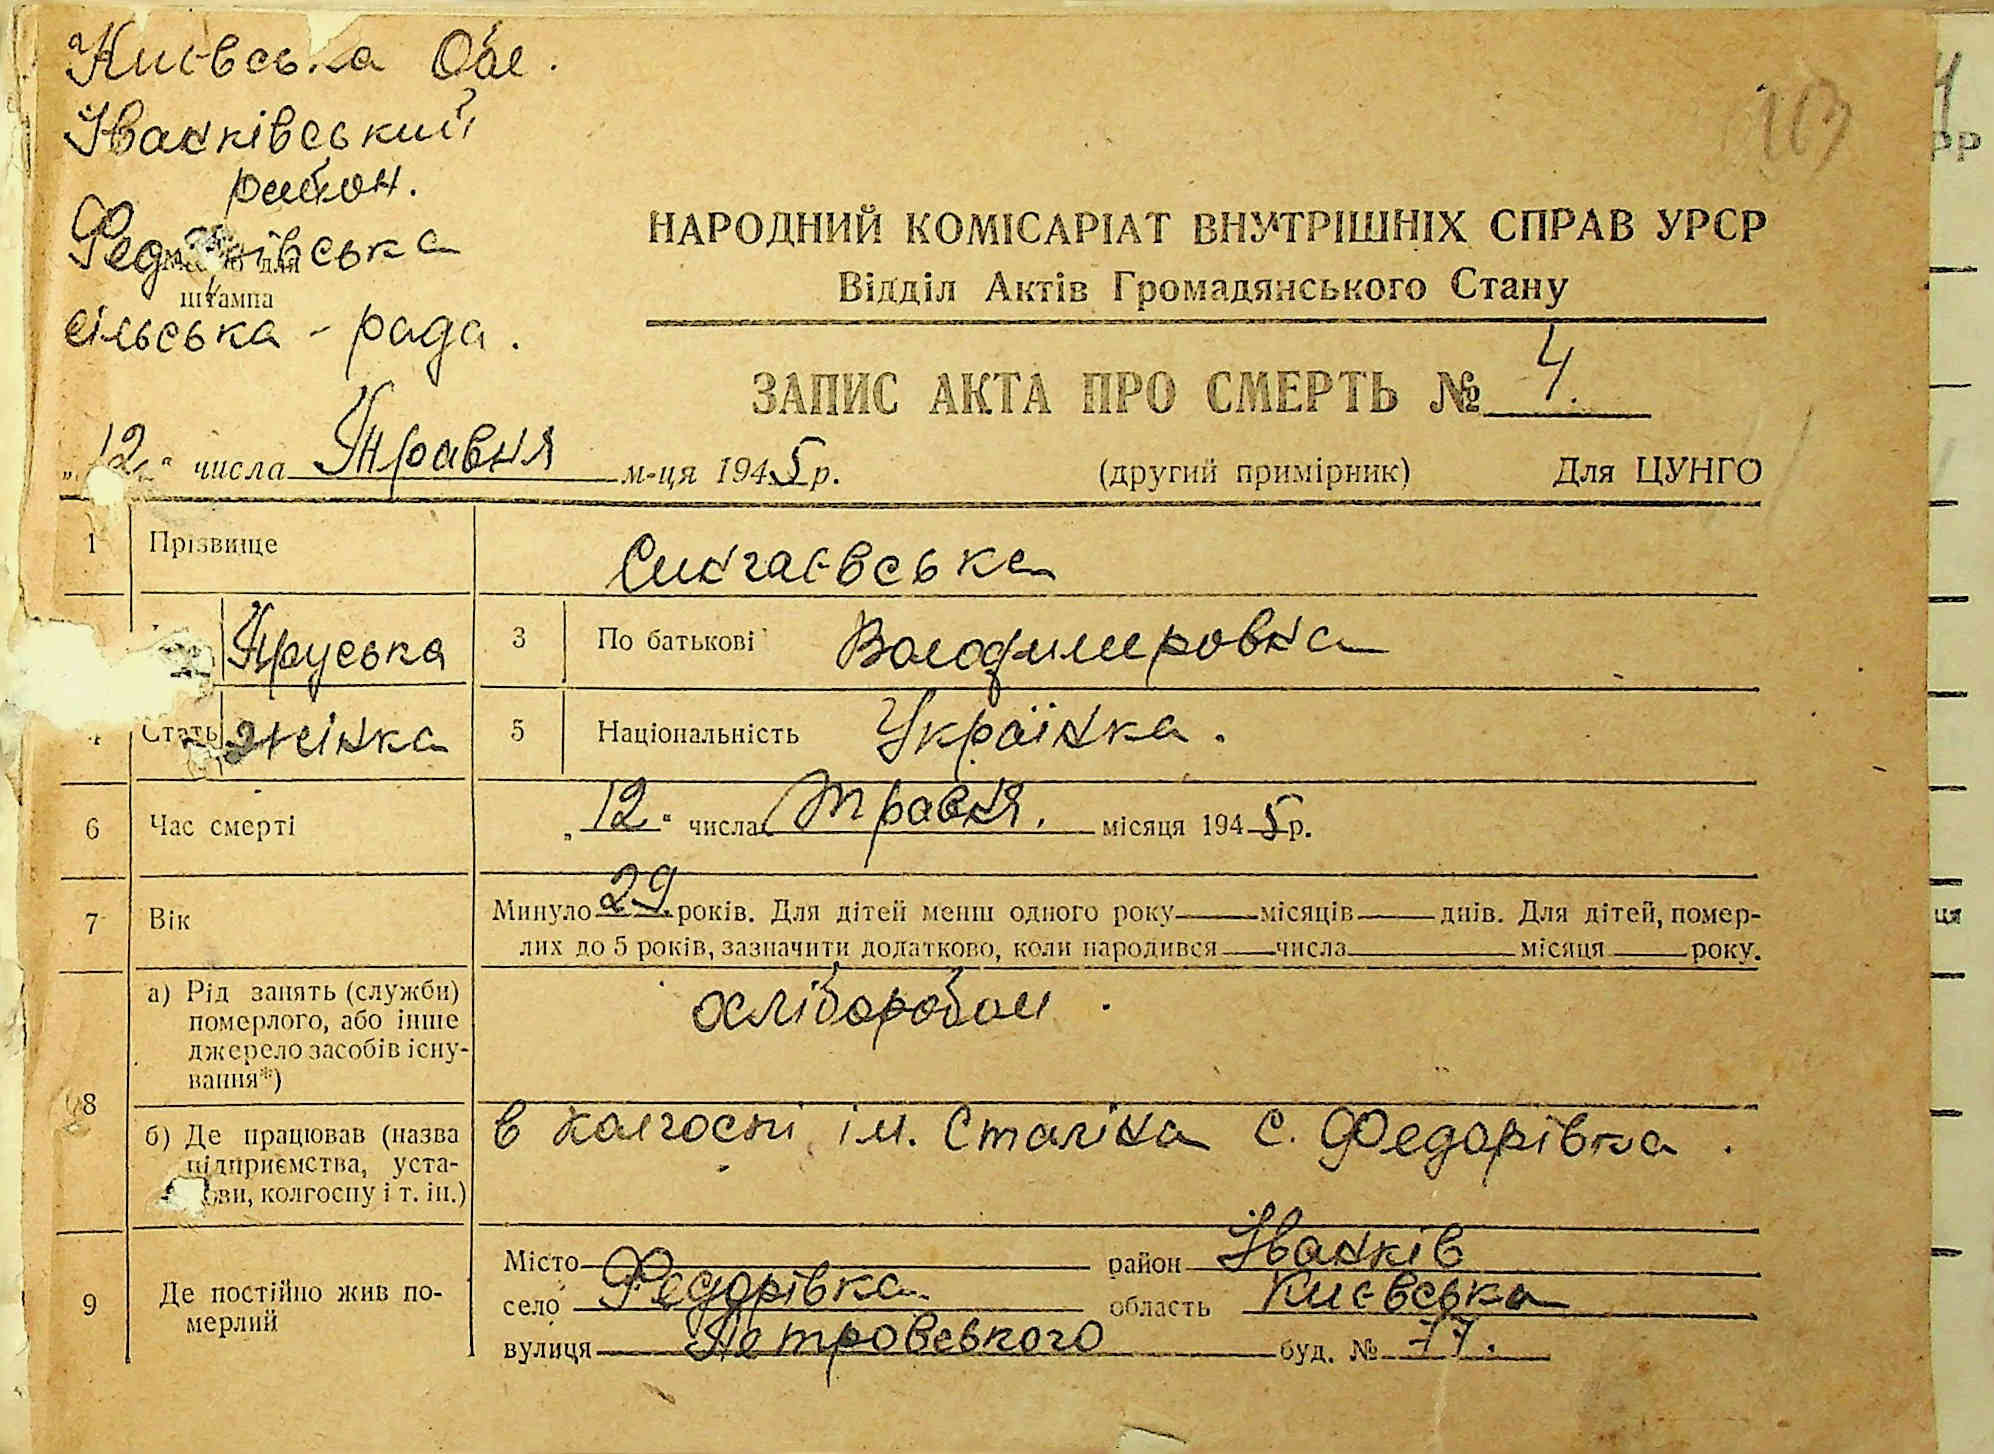 Киевська Обл.
Іванківський
район.
Федорівська
Місце для
штампа
сільська - рада.
113
НАРОДНИЙ КОМІСАРІАТ ВНУТРІШНІХ СПРАВ УРСР
Відділ Актів Громадянського Стану
ЗАПИС АКТА ПРО СМЕРТЬ № 4.
„12“ числа Травня м-ця 1945 р.
(другий примірник) Для ЦУНГО
1 Прізвище Сингаєвська
Пруська 3 По батькові Володимировна
4 Стать жінка 5 Національність Українка.
6 Час смерті „12“ числа Травня. місяця 1945 р.
7 Вік Минуло 29 років. Для дітей менш одного року місяців днів. Для дітей, помер-
лих до 5 років, зазначити додатково, коли народився числа місяця року.
8 а) Рід занять (служби)
померлого, або інше
джерело засобів існу-
вання*)
хлібороб
б) Де працював (назва
підприємства, уста-
нови, колгоспу і т. ін.)
в колгоспі ім. Сталіна с. Федорівка.
9 Де постійно жив по-
мерлий
Місто район Іванків
село Федорівка область Киевська
вулиця Петровського буд. № 77.